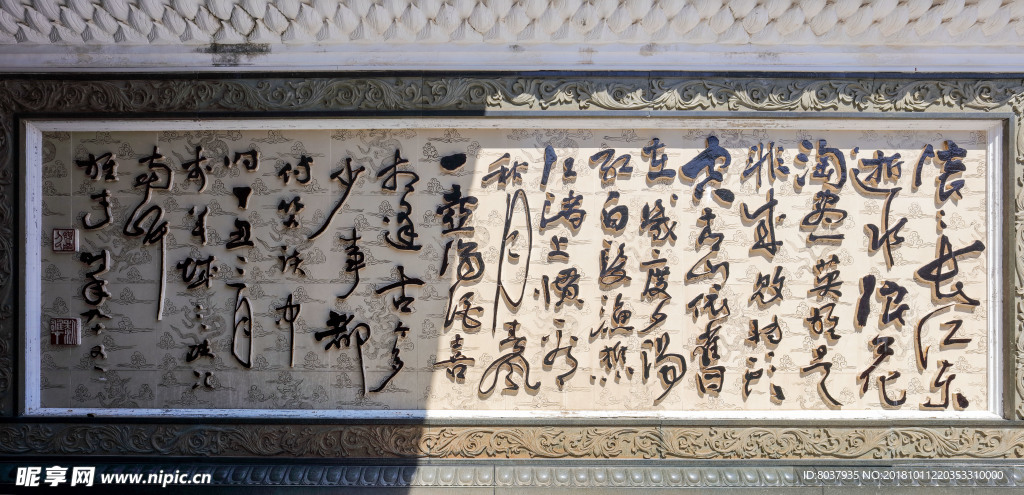 滚滚长江东
逝水浪花
淘尽英雄是
非成败转头
空青山依舊
在几度夕阳
红白发渔樵
江渚上惯看
秋月春风
一壶浊酒喜
相逢古今多
少事都
付笑谈中
时丁丑三月
昵享网 www.nipic.cn
ID:8037935 NO:20181011220353310000